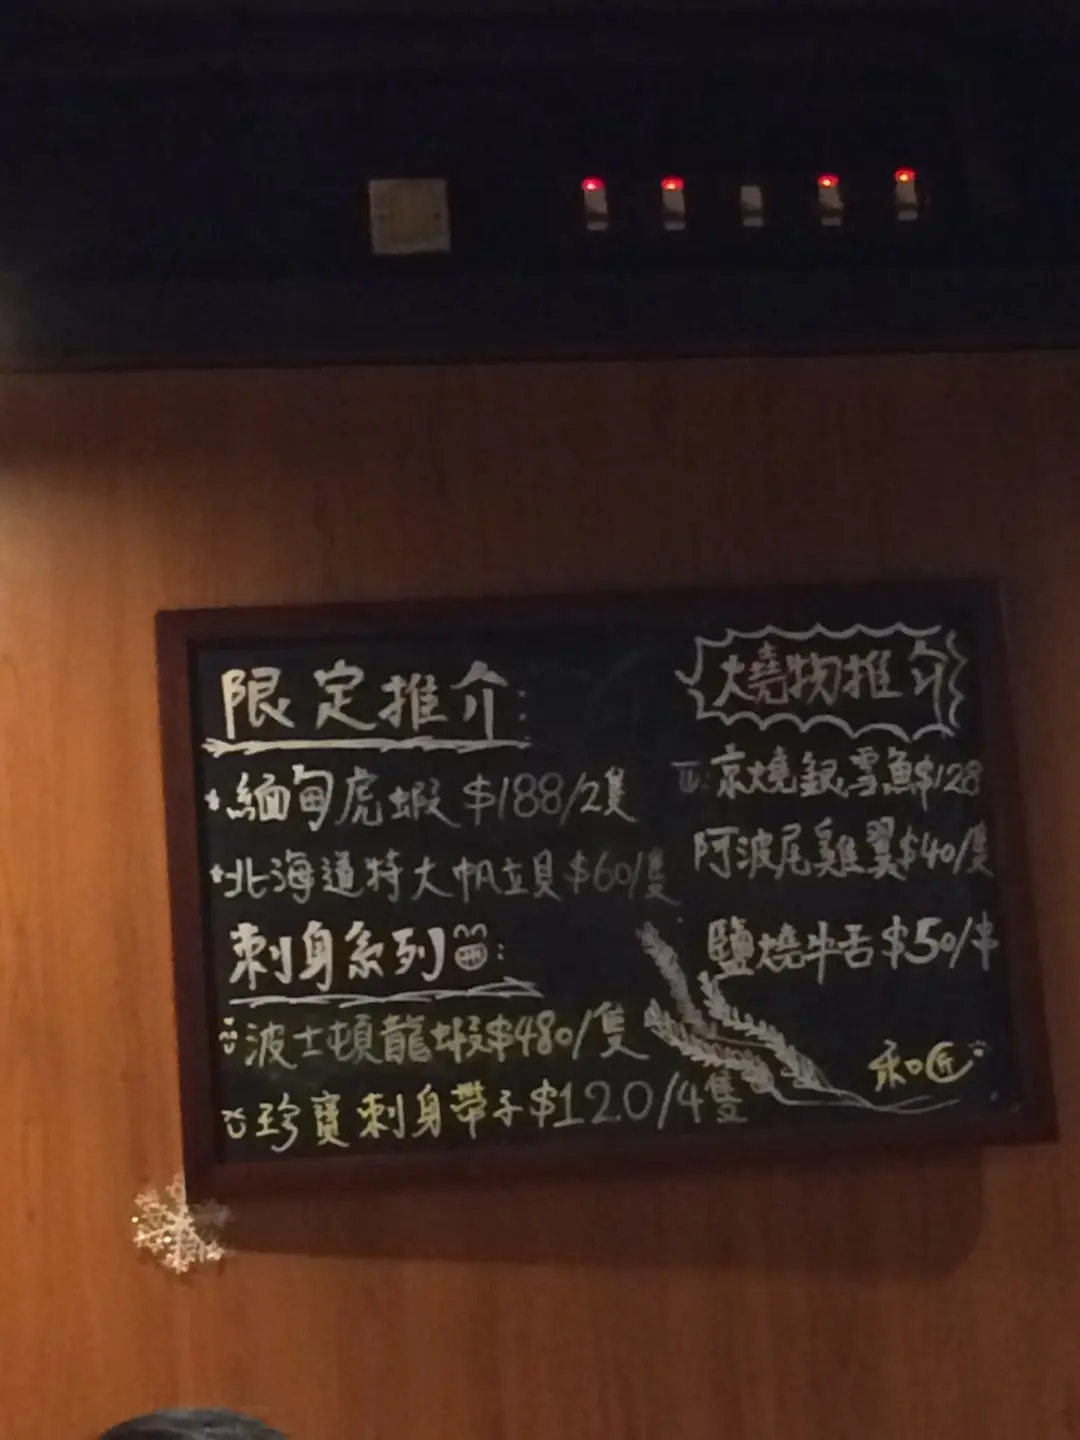 限定推介:
緬甸虎蝦 $188/2隻
北海道特大帆立貝 $60/隻
刺身系列:
波士頓龍蝦 $480/隻
珍寶刺身帶子 $120/4隻
燒物推介
京燒銀雪魚 $128
阿波尾雞翼 $40/隻
鹽燒牛舌 $50/串
和匠